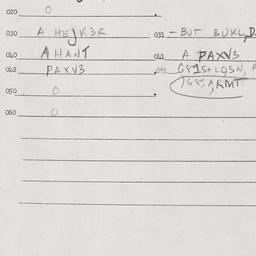 020 0
030 A HEJK3R 031 - BUT BUKL,D.
040 A HANT 041 A PAXV3
042 PAXV3 043
050 0
060 0